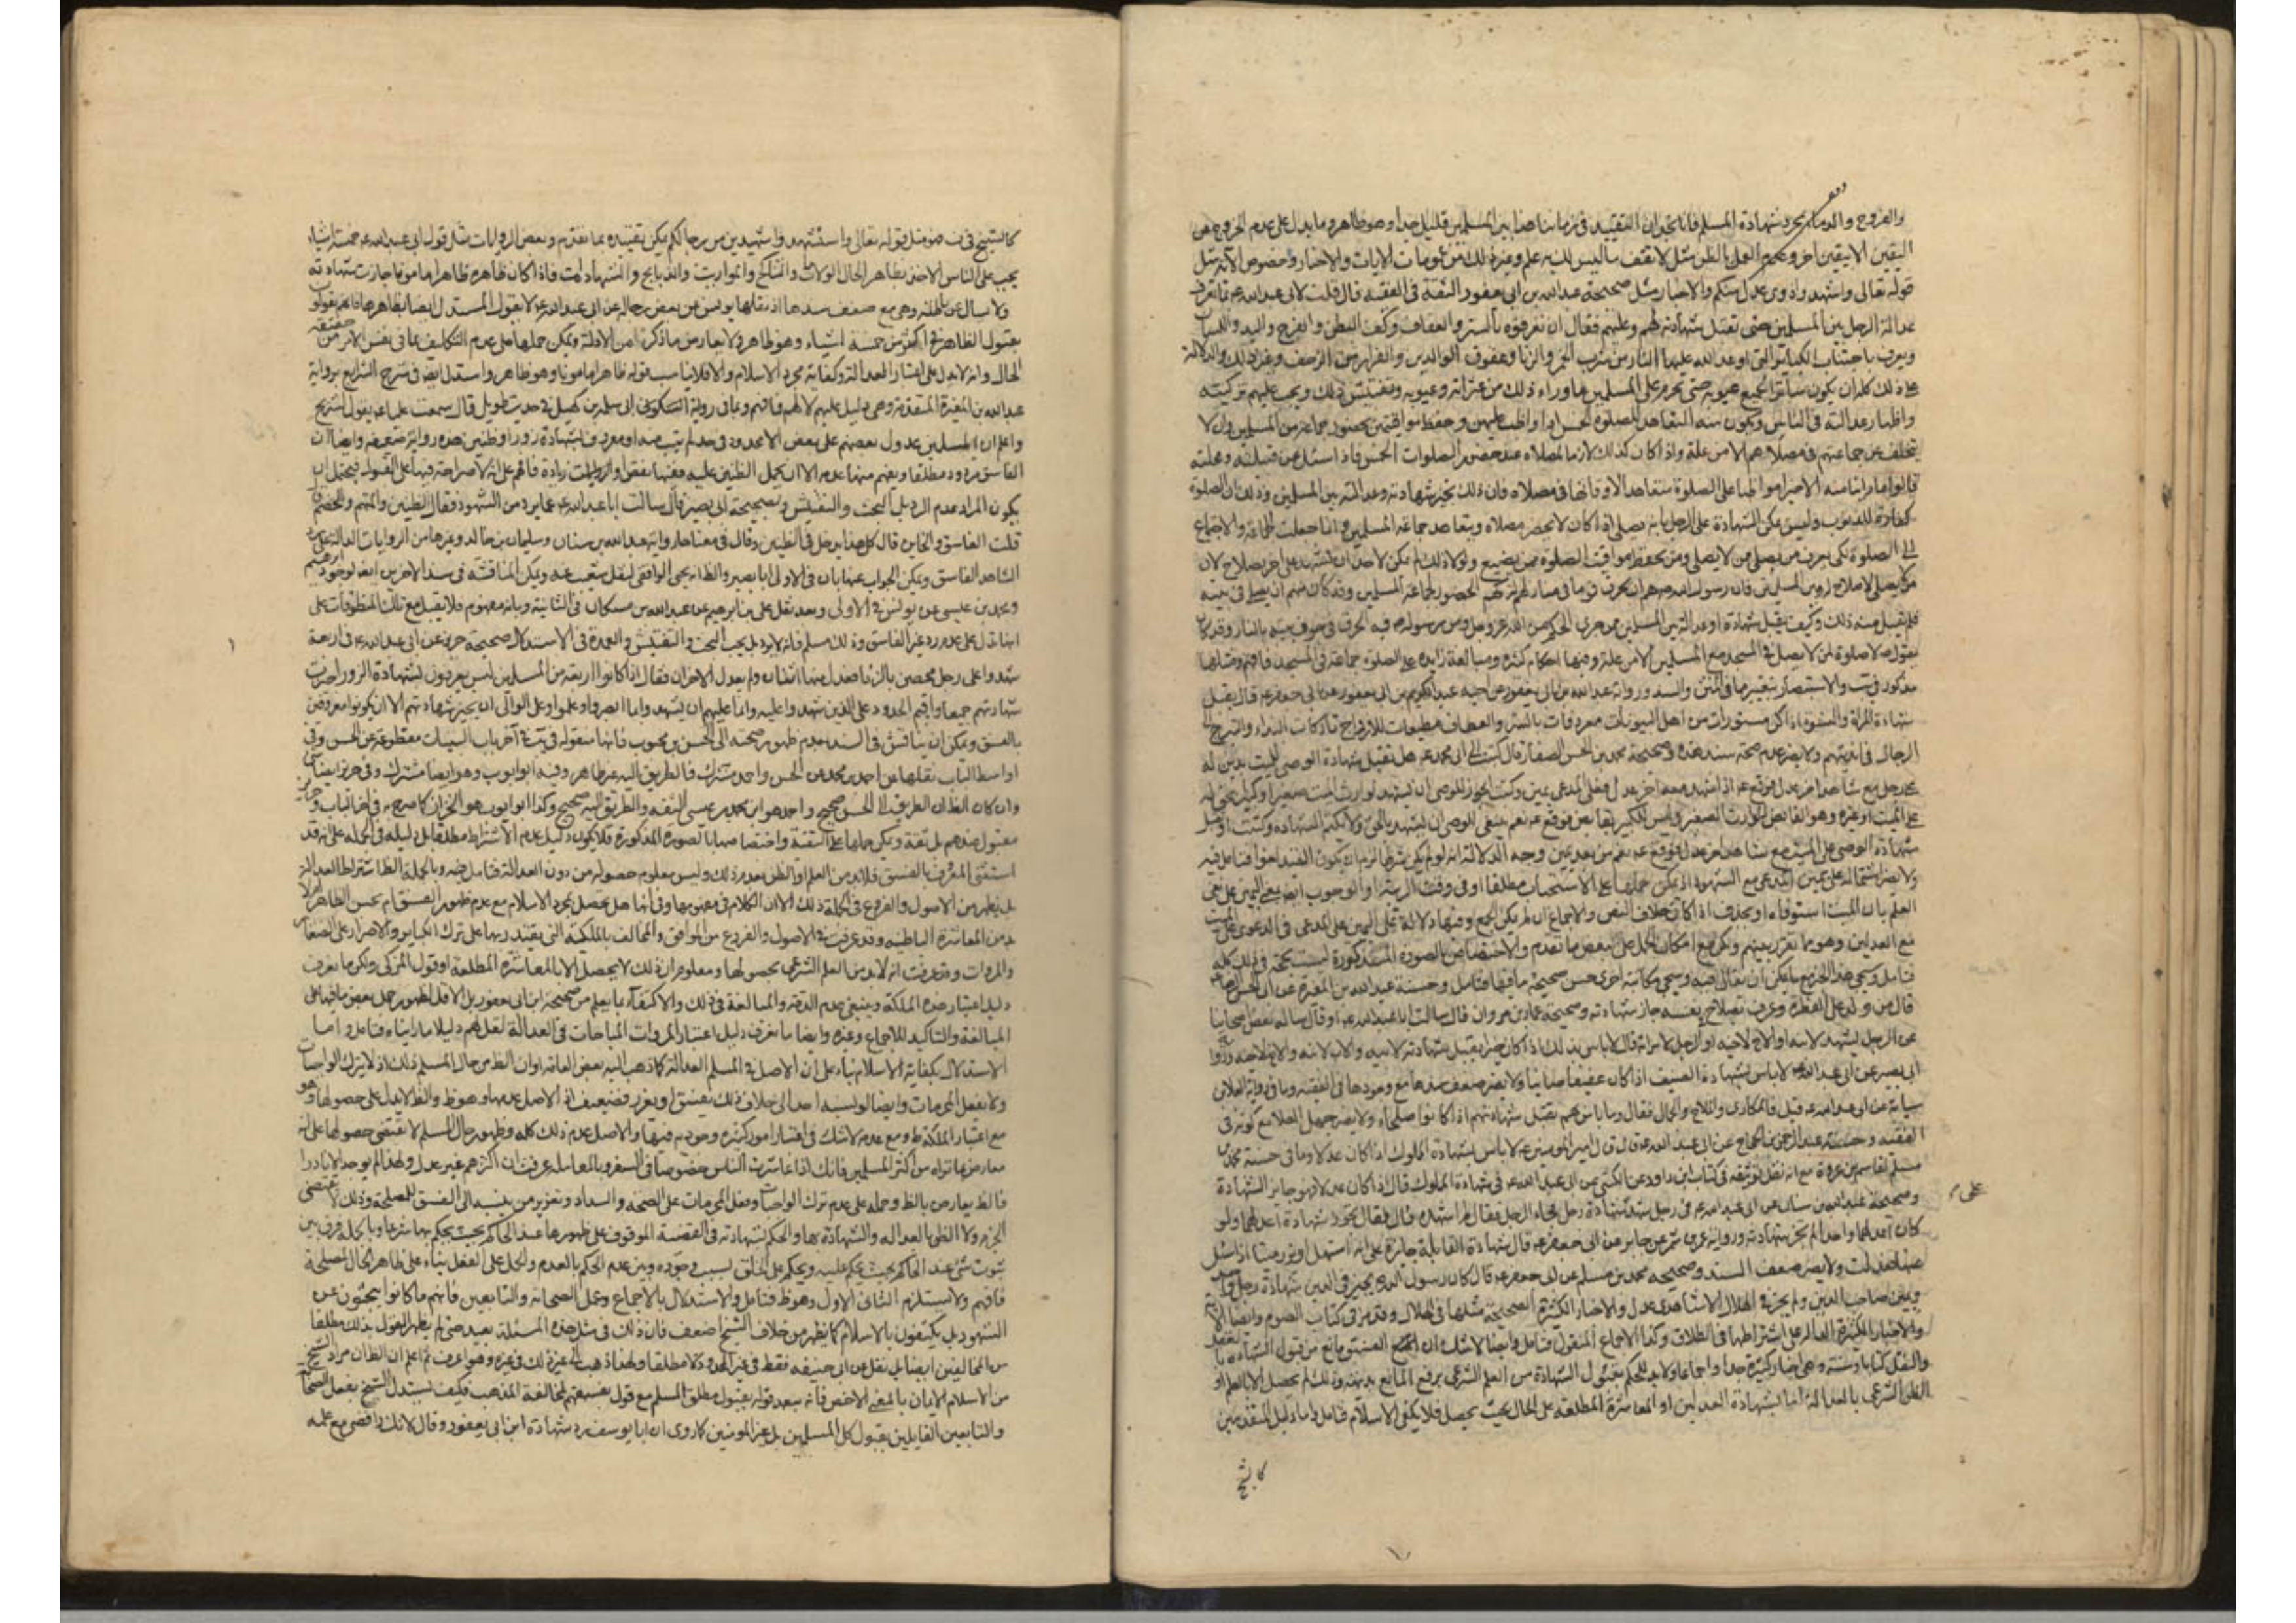 والفروج والدماء بمجرد شهادة المسلم فانا نجد ان التقييد في زماننا هذا بين المسلمين قليل جدا وهو ظاهر وما يدل على عدم الخروج عن
اليقين الا بيقين اخر وعدم العمل بالظن مثل لا تقف ما ليس لك به علم وغير ذلك من عمومات الايات والاخبار وخصوص الآية مثل
قوله تعالى واشهدوا ذوي عدل منكم والاخبار مثل صحيحة عبد الله بن ابي يعفور الثقة في الفقيه قال قلت لابي عبد الله ع بما تعرف
عدالة الرجل بين المسلمين حتى تقبل شهادته لهم وعليهم فقال ان تعرفوه بالستر والعفاف وكف البطن والفرج واليد واللسان
ويعرف باجتناب الكبائر التي اوعد الله عليها النار من شرب الخمر والزنا وعقوق الوالدين والفرار من الزحف وغير ذلك والدلالة
على ذلك كله ان يكون ساترا لجميع عيوبه حتى تحرم على المسلمين ما وراء ذلك من عثراته وعيوبه وتفتيش ذلك ويجب عليهم تزكيته
واظهار عدالته في الناس ويكون منه التعاهد للصلوة الخمس اذا واظب عليهن وحفظ مواقيتهن بحضور جماعة من المسلمين وان لا
يتخلف عن جماعتهم في مصلاهم الا من علة واذا كان كذلك لازما لمصلاه عند حضور الصلوات الخمس فاذا سئل عن في قبيلته ومحلته
قالوا ما راينا منه الا خيرا مواظبا على الصلوة متعاهدا لاوقاتها في مصلاه فان ذلك يجيز شهادته وعدالته بين المسلمين وذلك ان الصلوة
كفارة للذنوب وليس يمكن الشهادة على الرجل بانه يصلي اذا كان لا يحضر مصلاه ويتعاهد جماعة المسلمين وانما جعلت الجماعة والاجتماع
الى الصلوة لكي يعرف من يصلي ممن لا يصلي ومن يحفظ مواقيت الصلوة ممن يضيع ولولا ذلك لم يكن لاحد ان يشهد على اخر بصلاح لان
من لا يصلي لا صلاح له بين المسلمين فان رسول الله ص هم ان يحرق قوما في منازلهم لتركهم الحضور لجماعة المسلمين وقد كان منهم ان يصلي في بيته
فلم يقبل منه ذلك وكيف يقبل شهادة او عدالة بين المسلمين ممن جرى الحكم من الله عز وجل ومن رسوله ص فيه الحرق في جوف بيته بالنار وقد كان
يقول ص لا صلوة لمن لا يصلي في المسجد مع المسلمين الا من علة وفيها احكام كثيرة ومبالغة زايدة على الصلوة جماعة في المسجد فافهم ومثلها
مذكور في يب والاستبصار بتغيير ما في المتن والسند ورواية عبد الله بن ابي يعفور عن اخيه عبد الكريم بن ابي يعفور عن ابي جعفر ع قال يقبل
شهادة المراة والنسوة اذا كن مستورات من اهل البيوتات معروفات بالستر والعفاف مطيعات للازواج تاركات البذاء والتبرج الى
الرجال في انديتهم ولا يضر عدم صحة سند هذه وصحيحة محمد بن الحسن الصفار قال كتبت الى ابي محمد ع هل تقبل شهادة الوصي للميت بدين له
على رجل مع شاهد اخر عدل فوقع ع اذا شهد معه اخر عدل فعلى المدعي يمين وكتبت ايجوز للوصي ان يشهد لوارث الميت صغيرا او كبيرا بحق له
على الميت او غيره وهو القابض للوارث الصغير وليس للكبير بقابض فوقع ع نعم ينبغي للوصي ان يشهد بالحق ولا يكتم الشهادة وكتبت او تقبل
شهادة الوصي على الميت مع شاهد اخر عدل فوقع ع نعم من بعد يمين وجه الدلالة انه لو لم يكن شرطا لزم ان يكون القيد لغوا فتامل فيه
ولا يضر اشتماله على يمين المدعي مع الشهود اذ يمكن حملها على الاستحباب مطلقا او في وقت الريبة او الوجوب ايضا بمعنى اليمين على نفي
العلم بان الميت استوفاه
مع العدلين وهو مما تفرد بينهم ولكن مع امكان الحمل على بعض ما تقدم والاختصاص بالصورة المذكورة ليست بحجة في ذلك كله
قال من ولد على الفطرة وعرف بصلاح في نفسه جاز شهادته وصحيحة عمار بن مروان قال سالت ابا عبد الله ع او قال ساله بعض اصحابنا
عن الرجل يشهد لابيه او الاخ لاخيه او الرجل لامراته قال لا باس بذلك اذا كان خيرا يقبل شهادته لابيه والاب لابنه والاخ لاخيه
ابي بصير عن ابي عبد الله ع لا باس بشهادة الضيف اذا كان عفيفا صاينا ولا يضر ضعف سندها مع وجودها في الفقيه وما في رواية العلا بن
سيابة عن ابي عبد الله ع قيل فالمكاري والملاح والجمال فقال وما باس بهم يقبل شهادتهم اذا كانوا صلحاء ولا يضر جهل العلا مع كونه في
الفقيه وحسنة عبد الرحمن بن الحجاج عن ابي عبد الله ع قال قال امير المومنين ع لا باس بشهادة المملوك اذا كان عدلا وما في حسنة محمد بن
مسلم لقاسم بن عروة مع انه نقل توثيقه في كتاب ابن داود عن الكشي عن ابي عبد الله ع في شهادة المملوك قال اذا كان عدلا فهو جايز الشهادة
وصحيحة عبد الله بن سنان عن ابي عبد الله ع في رجل شهد شهادة رجل فجاء الرجل فقال لم اشهده قال فقال تجوز شهادة اعدلهما ولو
على
كان اعدلهما واحدا لم يجز شهادته ورواية عمرو بن شمر عن جابر عن ابي جعفر ع قال شهادة القابلة جايزة على انه استهل او برز ميتا اذا سئل
عنها فعدلت ولا يضر ضعف السند وصحيحة محمد بن مسلم عن ابي جعفر ع قال كان رسول الله ص يجيز في الدين شهادة رجل واحد
ويمين صاحب الدين ولم يجز في الهلال الا شاهدي عدل والاخبار الكثيرة الصحيحة مثلها في الهلال وقد مر في كتاب الصوم وايضا الآية
والاخبار الكثيرة الدالة على اشتراطها في الطلاق وكذا الاجماع المنقول فتامل وايضا لا شك ان الفسق مانع من قبول الشهادة بالعقل
والنقل كتابا وسنة وهي اخبار كثيرة جدا واجماعا ولا بد للحكم بقبول الشهادة من العلم الشرعي برفع المانع بديهة وذلك لم يحصل الا بالعلم او
الظن الشرعي بالعدالة اما بشهادة العدلين او المعاشرة المطلعة على الحال بحيث يحصل فلا يكفي الاسلام فتامل واما دليل المتقدمين
كالشيخ
كالشيخ في ف فهو مثل قوله تعالى واستشهدوا شهيدين من رجالكم يمكن تقييده بما تقدم وبعض الروايات مثل قول ابي عبد الله ع خمسة اشياء
يجب على الناس الاخذ بظاهر الحال الولايات والمناكح والمواريث والذبايح والشهادات فاذا كان ظاهره ظاهرا مامونا جازت شهادته
ولا يسال عن باطنه وهي مع ضعف سندها اذ نقلها يونس عن بعض رجاله عن ابي عبد الله ع لا يقول المستدل ايضا بظاهرها
بقبول الظاهر في اكثر من خمسة اشياء وهو ظاهر ولا يعارض ما ذكرنا من الادلة ويمكن حملها على عدم التكليف بما في نفس الامر من حقيقة
الحال وانه لا يدل على اعتبار العدالة وكفاية مجرد الاسلام والا فلا يناسب قوله ظاهرا مامونا وهو ظاهر واستدل ايضا في شرح الشرايع برواية
عبد الله بن المغيرة المتقدمة وهي دليل عليهم لا لهم فافهم وبما في رواية السكوني الى سلمة بن كهيل في حديث طويل قال سمعت عليا ع يقول لشريح
واعلم ان المسلمين عدول بعضهم على بعض الا محدود في حد لم يتب منه او معروف بشهادة زور او ظنين هذه رواية ضعيفة وايضا ان
يكون المراد عدم الرد بل البحث والتفتيش وبصحيحة ابي بصير قال سالت ابا عبد الله ع عما يرد من الشهود فقال الظنين والمتهم والخصم قال
قلت الفاسق والخاين قال كل هذا يدخل في الظنين وقال في معناها رواية عبد الله بن سنان وسليمان بن خالد وغيرها من الروايات الدالة على رد
ايضا تدل على عدم رد غير الفاسق وذلك مسلم فانه لا يرد بل يجب البحث والتفتيش والعمدة في الاستدلال صحيحة حريز عن ابي عبد الله ع في اربعة
شهدوا على رجل محصن بالزنا فعدل منهم اثنان ولم يعدل الاخران فقال اذا كانوا اربعة من المسلمين ليس يعرفون بشهادة الزور اجيزت
شهادتهم جميعا واقيم الحدود على الذين شهدوا عليه وانما عليهم ان يشهدوا بما ابصروا وعلموا وعلى الوالي ان يجيز شهادتهم الا ان يكونوا معروفين
بالفسق ويمكن ان يناقش في السند بعدم ظهور صحته الى الحسن بن محبوب فانها منقولة في يب في آخر باب البينات مقطوعة عن الحسن وفي
اواسط الباب نقلها عن احمد بن محمد عن الحسن واحمد مشترك فالطريق اليه غير ظاهر وفيه ابو ايوب وهو ايضا مشترك وفي حريز ايضا شيء
وان كان الظ ان الطريق الى الحسن صحيح واحمد هو ابن محمد بن عيسى الثقة والطريق اليه صحيح وكذا ابو ايوب هو الخزاز كما صرح به في اخر الباب وحريز
مقبول عندهم بل ثقة ويمكن حملها على التقية واختصاصها بالصورة المذكورة فلا يكون دليل عدم الاشتراط مطلقا بل دليله في الجملة على انه قد
استثنى المعروف بالفسق فلا بد من العلم او الظن بعدم ذلك وليس معلوم حصوله من دون العدالة فتامل فيه وبالجملة الظ اشتراط العدالة
بل يظهر من الاصول والفروع في الجملة ذلك الا ان الكلام في مفهومها وفي انها هل تحصل بمجرد الاسلام مع عدم ظهور الفسق ام بحسن الظاهر ام لا
بد من المعاشرة الباطنية وقد عرفت في الاصول والفروع من الموافق والمخالف بالملكة التي يقتدر بها على ترك الكباير والاصرار على الصغاير
والمروات وقد عرفت انه لا بد من العلم الشرعي بحصولها ومعلوم ان ذلك لا يحصل الا بالمعاشرة المطلعة او قول المزكي ولكن ما نعرف
دليل اعتبار هذه الملكة وينبغي عدم الدقة والمبالغة في ذلك والاكتفاء بما يعلم من صحيحة ابن ابي يعفور بل الاقل لظهور حمل بعض ما فيها على
المبالغة والتاكيد للاجماع وغيره وايضا ما نعرف دليل اعتبار المروات المباحات في العدالة لعل لهم دليلا ما رايناه فتامل واما
الاستدلال بكفاية الاسلام بناء على ان الاصل في المسلم العدالة كما ذهب اليه بعض العامة او ان الظ من حال المسلم ذلك اذ لا يترك الواجبات
ولا يفعل المحرمات وايضا لو نسبه احد الى خلاف ذلك يفسق او يعزر فضعيف اذ الاصل عدمها وهو ظ والظ لا يدل على حصولها وهو
مع اعتبار الملكة ظ ومع عدمه لا شك في اعتبار امور كثيرة وجودية فيها والاصل عدم ذلك كله وظهور حال المسلم لا تقتضي حصولها على انه
معارض بما تراه من اكثر المسلمين فانك اذا عاشرت الناس خصوصا في السفر وبالمعاملة عرفت ان اكثرهم غير عدل ولهذا لم يوجد الا نادرا
فالظ يعارض بالظ وحمله على عدم ترك الواجبات وفعل المحرمات على الصحة والسداد وتعزير من ينسبه الى الفسق للمصلحة وذلك لا يقتضي
الجزم ولا الظن بالعدالة والشهادة بها والحكم بشهادته في القضية الموقوف على ظهورها عند الحاكم بحيث يحكم بها شرعا وبالجملة فرق بين
ثبوت شيء عند الحاكم بحيث يحكم عليه ويحكم على الخلق بسبب وجوده وبين عدم الحكم بالعدم والحمل على الفعل بناء على ظاهر الحال لمصلحة
فافهم ولا يستلزم الثاني الاول وهو ظ فتامل والاستدلال بالاجماع وعمل الصحابة والتابعين فانهم ما كانوا يبحثون عن
الشهود بل يكتفون بالاسلام كما يظهر من خلاف الشيخ اضعف فان ذلك في مثل هذه المسئلة بعيد حتى لم يظهر القول بذلك مطلقا
من المخالفين ايضا بل نقل عن ابي حنيفة فقط في غير الحدود لا مطلقا ولهذا ذهب الى غير ذلك في غيره وهو اعرف ثم اعلم ان الظ ان مراد الشيخ
من الاسلام الايمان بالمعنى الاخص فانه يبعد قوله بقبول مطلق المسلم مع قول بفسقهم لمخالفة المذهب فكيف يستدل الشيخ بفعل الصحابة
والتابعين القايلين بقبول كل المسلمين بل غير المومنين كما روى ان ابا يوسف رد شهادة ابن ابي يعفور وقال لانك رافضي مع علمه